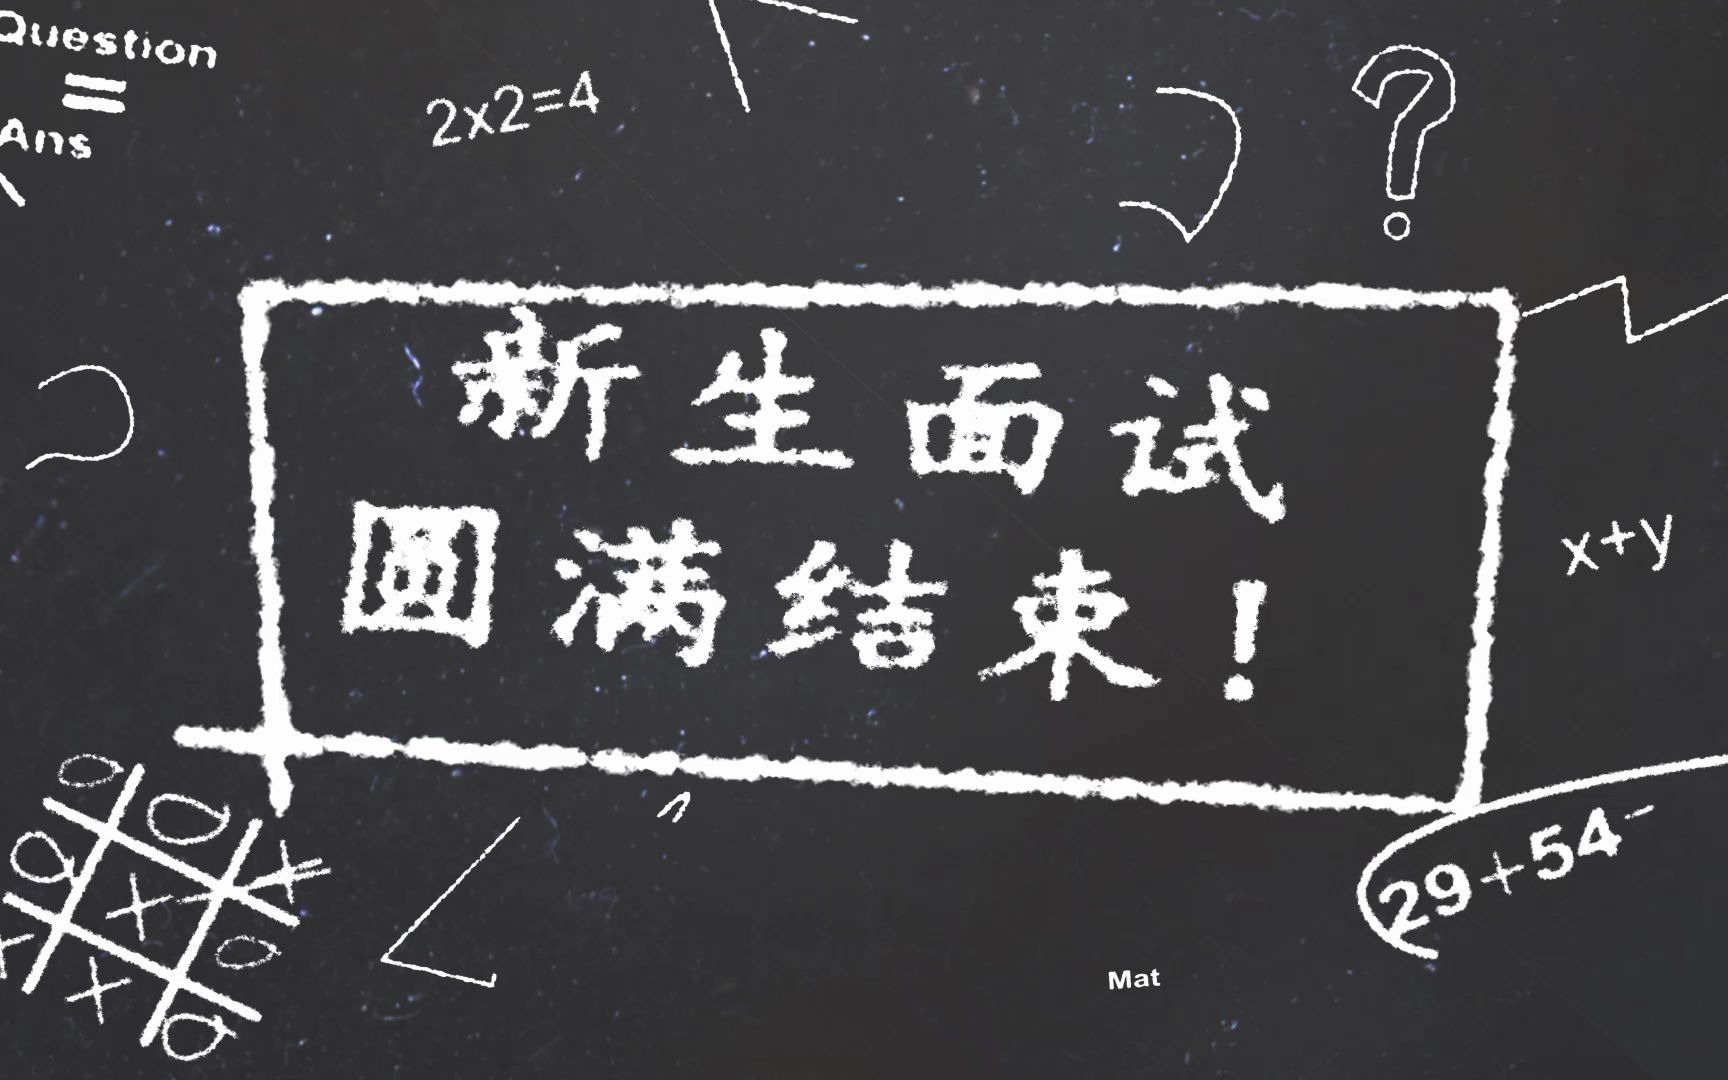 Question
=
Ans
2x2=4
?
新生面试
圆满结束!
x+y
29+54-
Mat